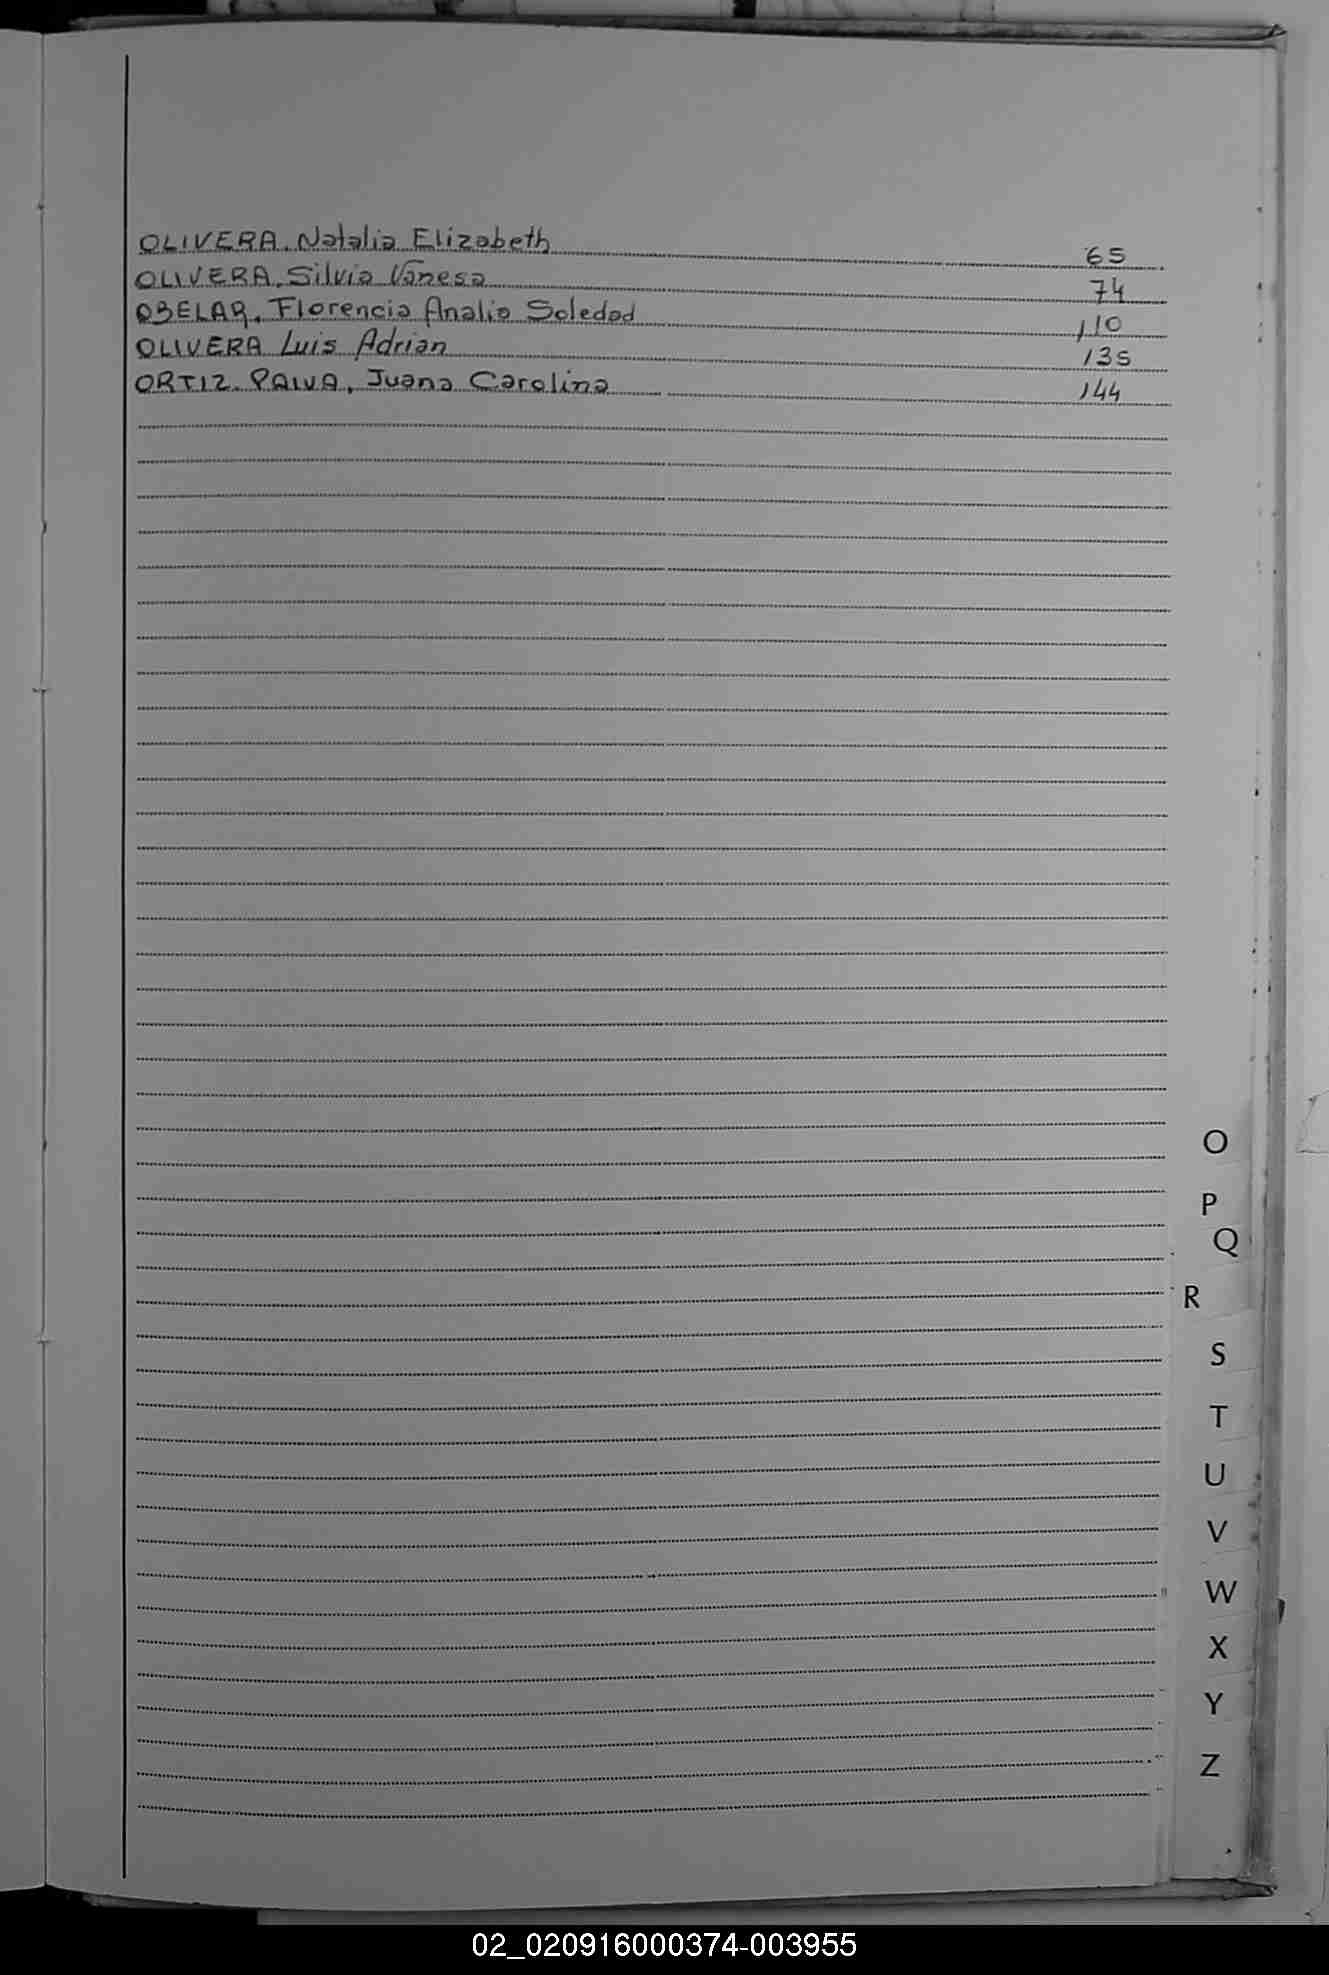 OLIVERA, Natalia Elizabeth 65
OLIVERA, Silvia Vanesa 74
OBELAR, Florencia Analia Soledad 110
OLIVERA Luis Adrian 135
ORTIZ PAIVA, Juana Carolina 144
O
P
Q
R
S
T
U
V
W
X
Y
Z
02_020916000374-003955